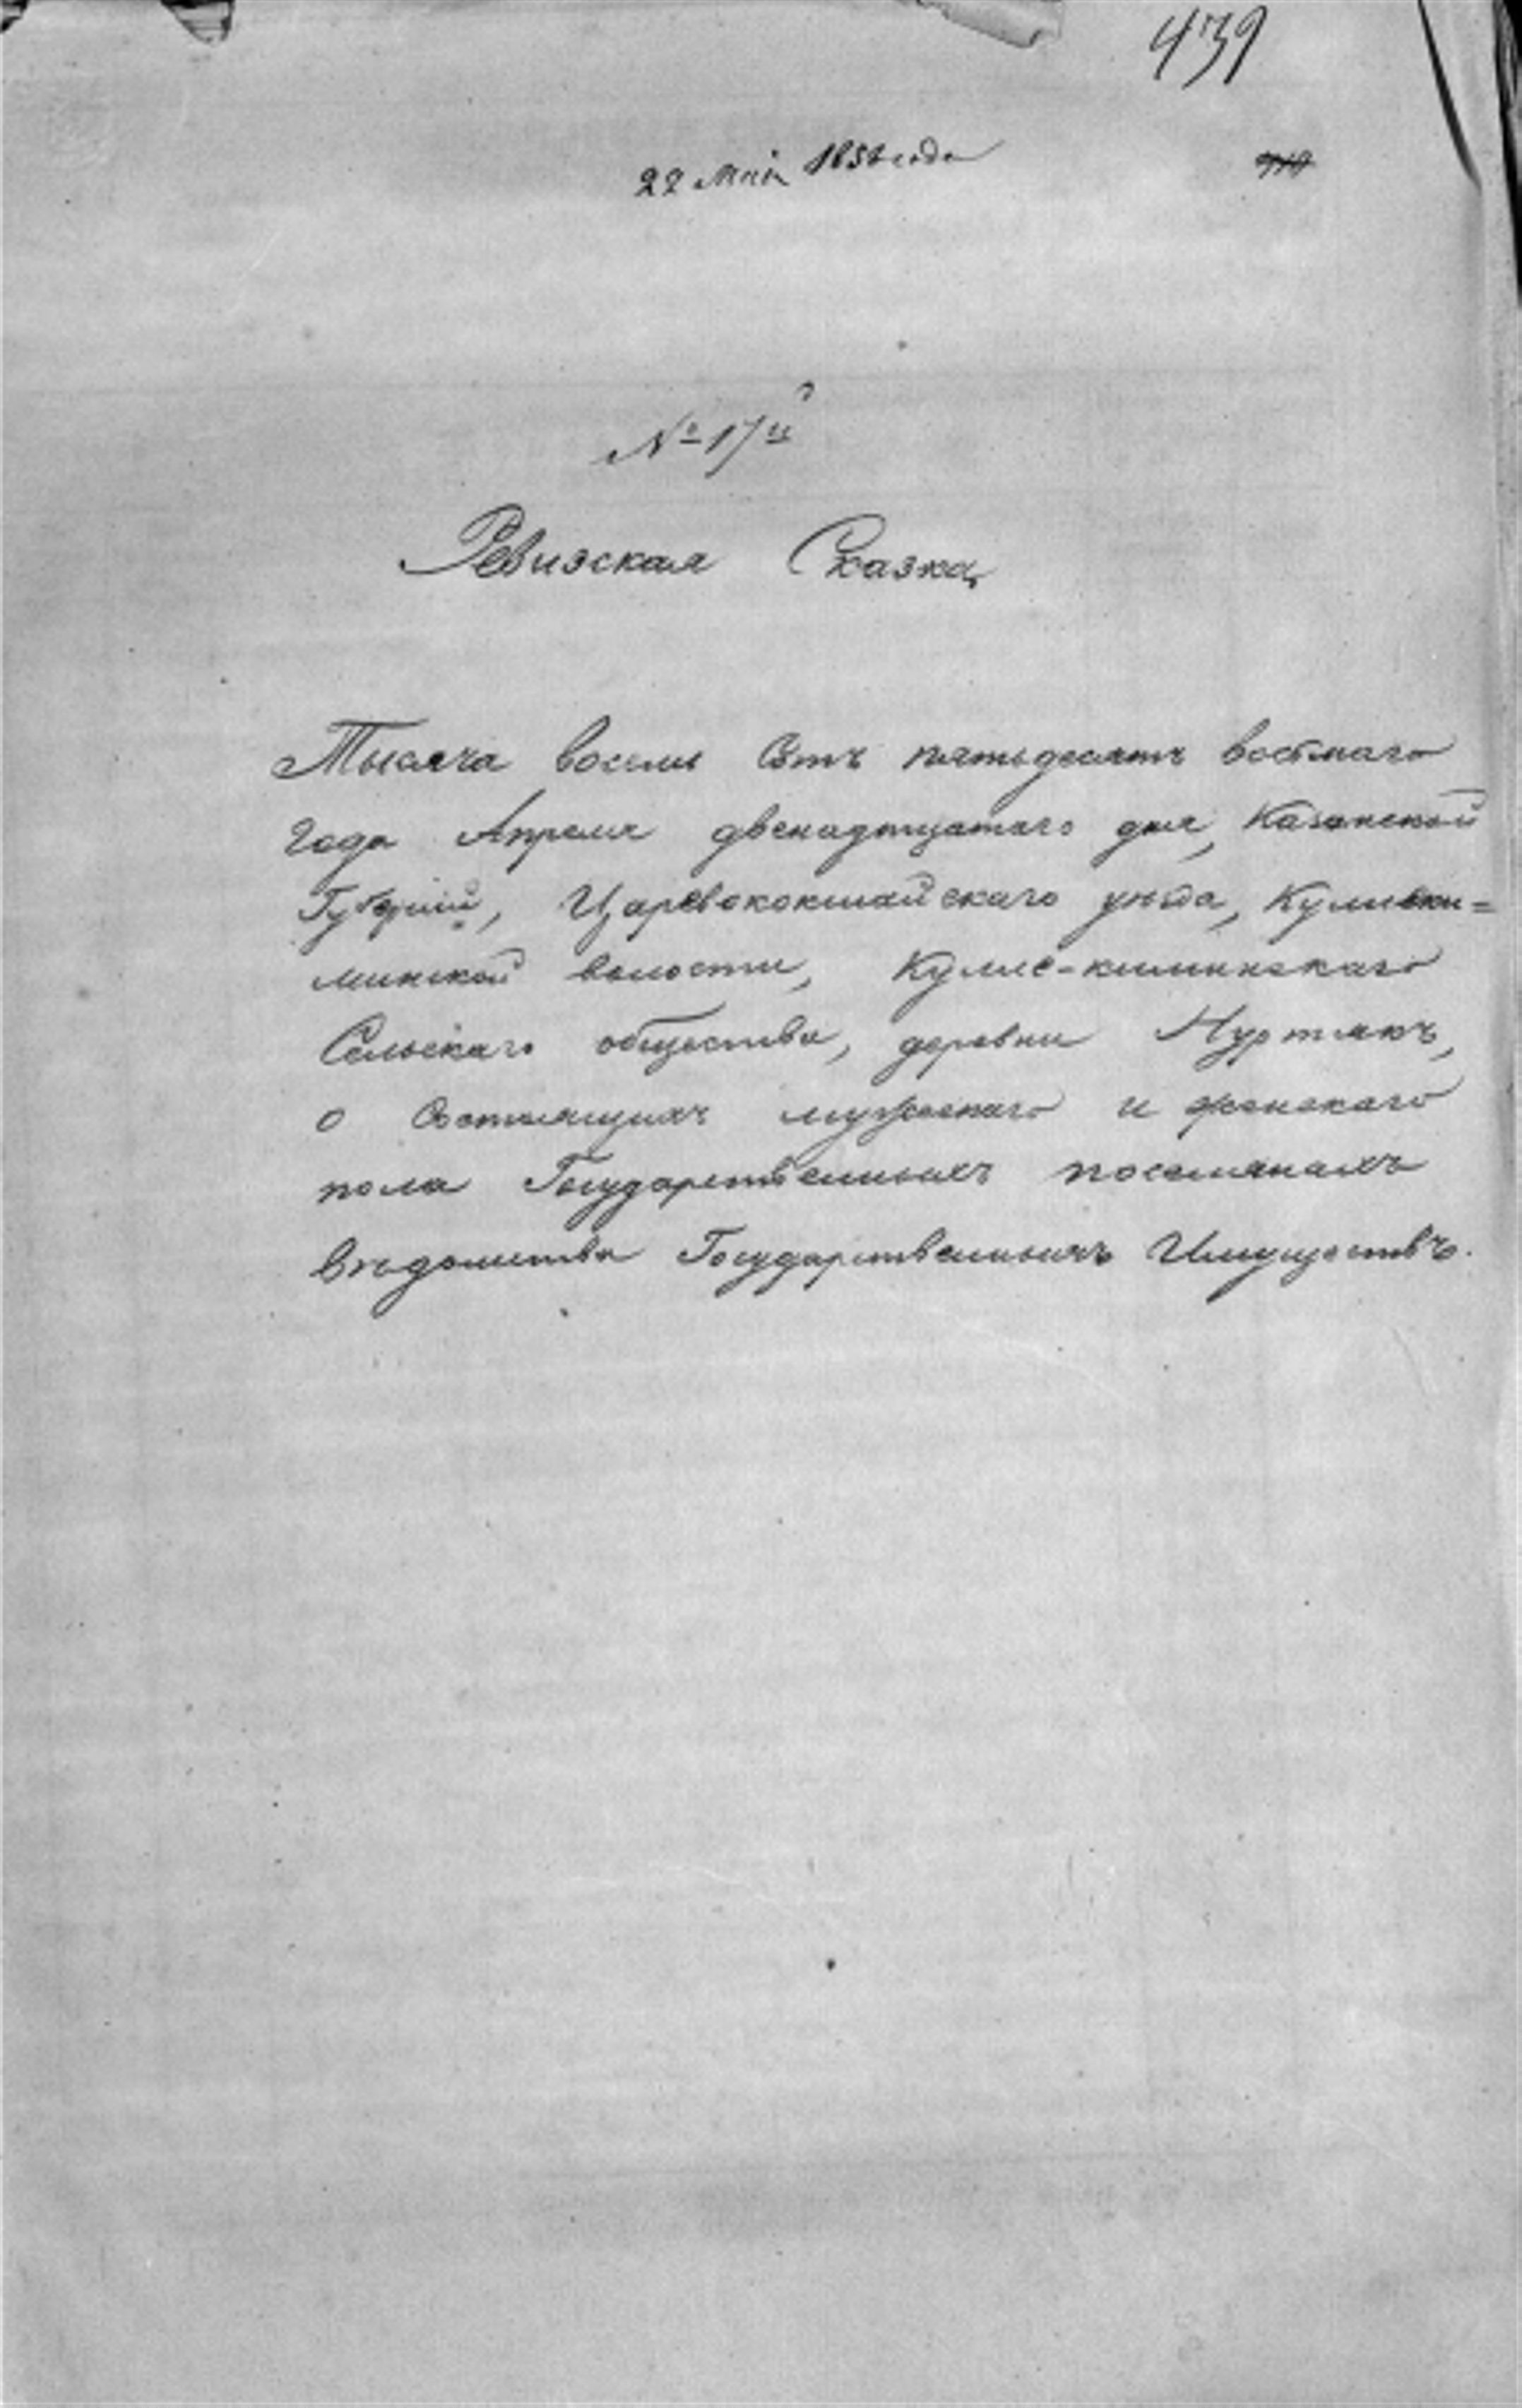 439
22 Мая 1858 года
№ 17й
Ревизская Сказка
Тысяча восемь Сотъ пятьдесятъ восьмаго
года Апреля двенадтцатаго дня, Казанской
Губернiи, Царевококшайскаго уѣзда, Кулле-ки=
минской волости, Кулле-киминскаго
Сельскаго общества, деревни Нуртякъ,
о Состоящихъ мужескаго и женскаго
пола Государственныхъ поселянахъ
Вѣдомства Государственныхъ Имуществъ.